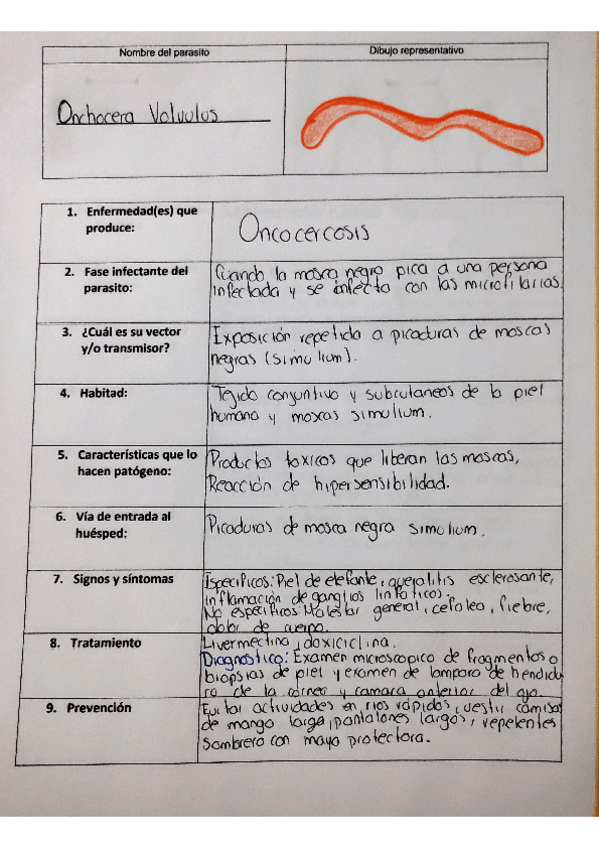 Nombre del parasito
Dibujo representativo
Onchocera Volvulus
1. Enfermedad(es) que
produce:
Oncocercosis
2. Fase infectante del
parasito:
Cuando la mosca negro pica a una persona
infectada y se infecta con las microfilarias.
3. ¿Cuál es su vector
y/o transmisor?
Exposición repetida a picaduras de moscas
negras (simulium).
4. Habitad:
Tejido conjuntivo y subcutaneos de la piel
humana y moscas simulium.
5. Características que lo
hacen patógeno:
Productos toxicos que liberan las moscas,
Reacción de hipersensibilidad.
6. Vía de entrada al
huésped:
Picaduras de mosca negra simulium.
7. Signos y síntomas
Especificos: Piel de elefante, queratitis esclerosante,
inflamación de ganglios linfaticos.
No especificos: Malestar general, cefalea, fiebre,
dolor de cuerpo.
8. Tratamiento
Livermectina, doxiciclina.
Diagnostico: Examen microscopico de fragmentos o
biopsias de piel y examen de lampara de hendidu
ra de la cornea y camara anterior del ojo.
9. Prevención
Evitar actividades en rios rápidos, vestir camisas
de manga larga, pantalones largos, repelentes
Sombrero con maya protectora.